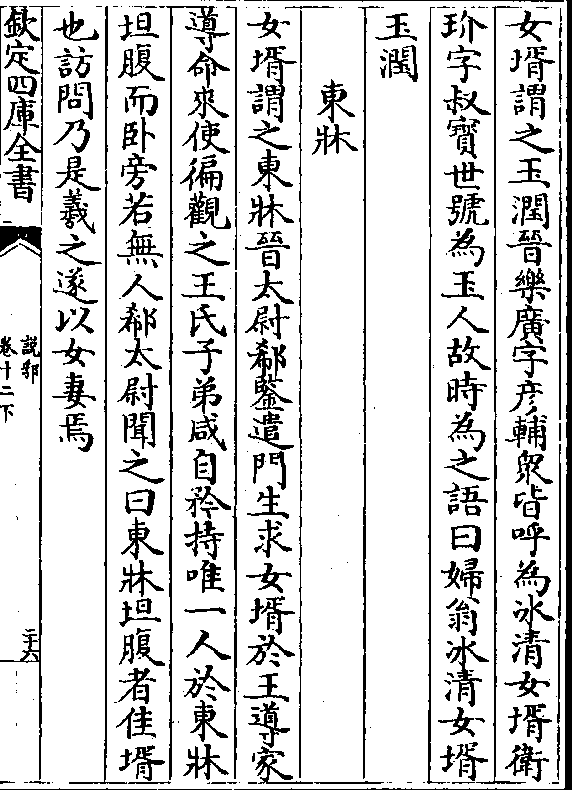 女壻謂之玉潤晉樂廣字彦輔衆皆呼為冰清女壻衛
玠字叔寳世號為玉人故時為之語曰婦翁冰清女壻
玉潤
東牀
女壻謂之東牀晉太尉郗鑒遣門生求女壻於王導家
導命來使徧觀之王氏子弟咸自矜持唯一人於東牀
坦腹而卧旁若無人郗太尉聞之曰東牀坦腹者佳壻
也訪問乃是羲之遂以女妻焉
欽定四庫全書
說郛
卷十二下
二十六